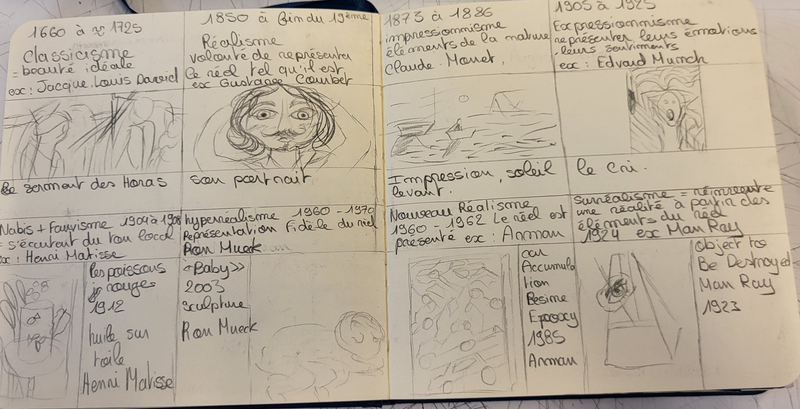 1660 à ≈ 1725
Classicisme
= beauté idéale
ex : Jacque. Louis David
Le serment des Horas
1850 à fin du 19ème
Réalisme
volonté de représenter
le réel tel qu'il est
ex Gustave Courbet
son portrait
Nabis + Fauvisme 1904 à 1908
= s'écartent du ton local
ex : Henri Matisse
les poissons
rouges
1912
huile sur
toile
Henri Matisse
hyperréalisme 1960 - 1970
Représentation Fidèle du réel
Ron Mueck
"Baby"
2003
sculpture
Ron Mueck
1873 à 1886
impressionnisme
éléments de la nature
Claude. Monet,
Impression, soleil
levant.
1905 à 1925
Expressionnisme
représenter leurs émotions
, leurs sentiments
ex : Edvard Munch
le cri.
Nouveau Réalisme
1960 - 1962 Le réel est
présenté ex : Arman
Accumula
tion
Résine
Epoxy
1985
Arman
surréalisme =
une réalité à partir des
éléments du réel
1924 ex Man Ray
Object to
Be Destroyed
Man Ray
1923